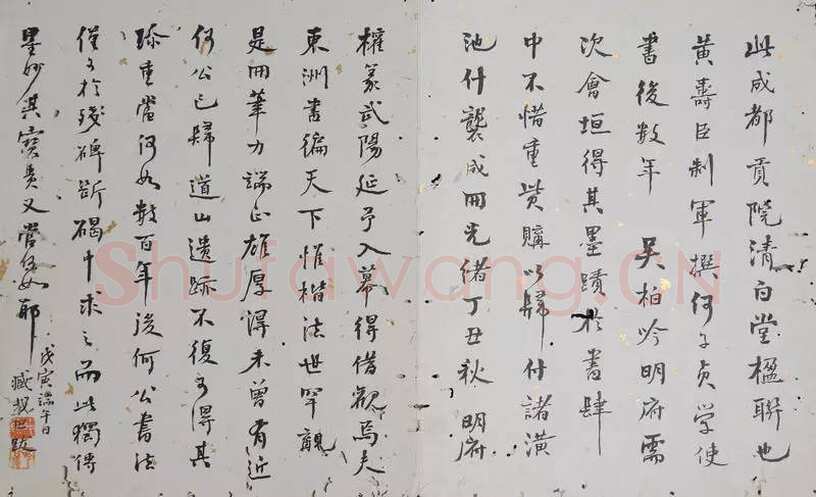 此成都貢院清白堂楹聯也
黃壽臣制軍撰何子貞學使
書後數年 吳柏吟明府需
次會垣得其墨蹟於書肆
中不惜重貲購以歸付諸潢
池什襲成冊光緒丁丑秋明府
權篆武陽延予入幕得借觀焉夫
東洲書徧天下惟楷法世罕覯
是冊筆力端正雄厚得未曾有近
何公已歸道山遺跡不復可得其
珍重當何如數百年後何公書法
僅可於殘碑斷碣中求之而此獨傳
墨妙其寶貴又當何如耶
戊寅端午日
題
Shufawang.CN